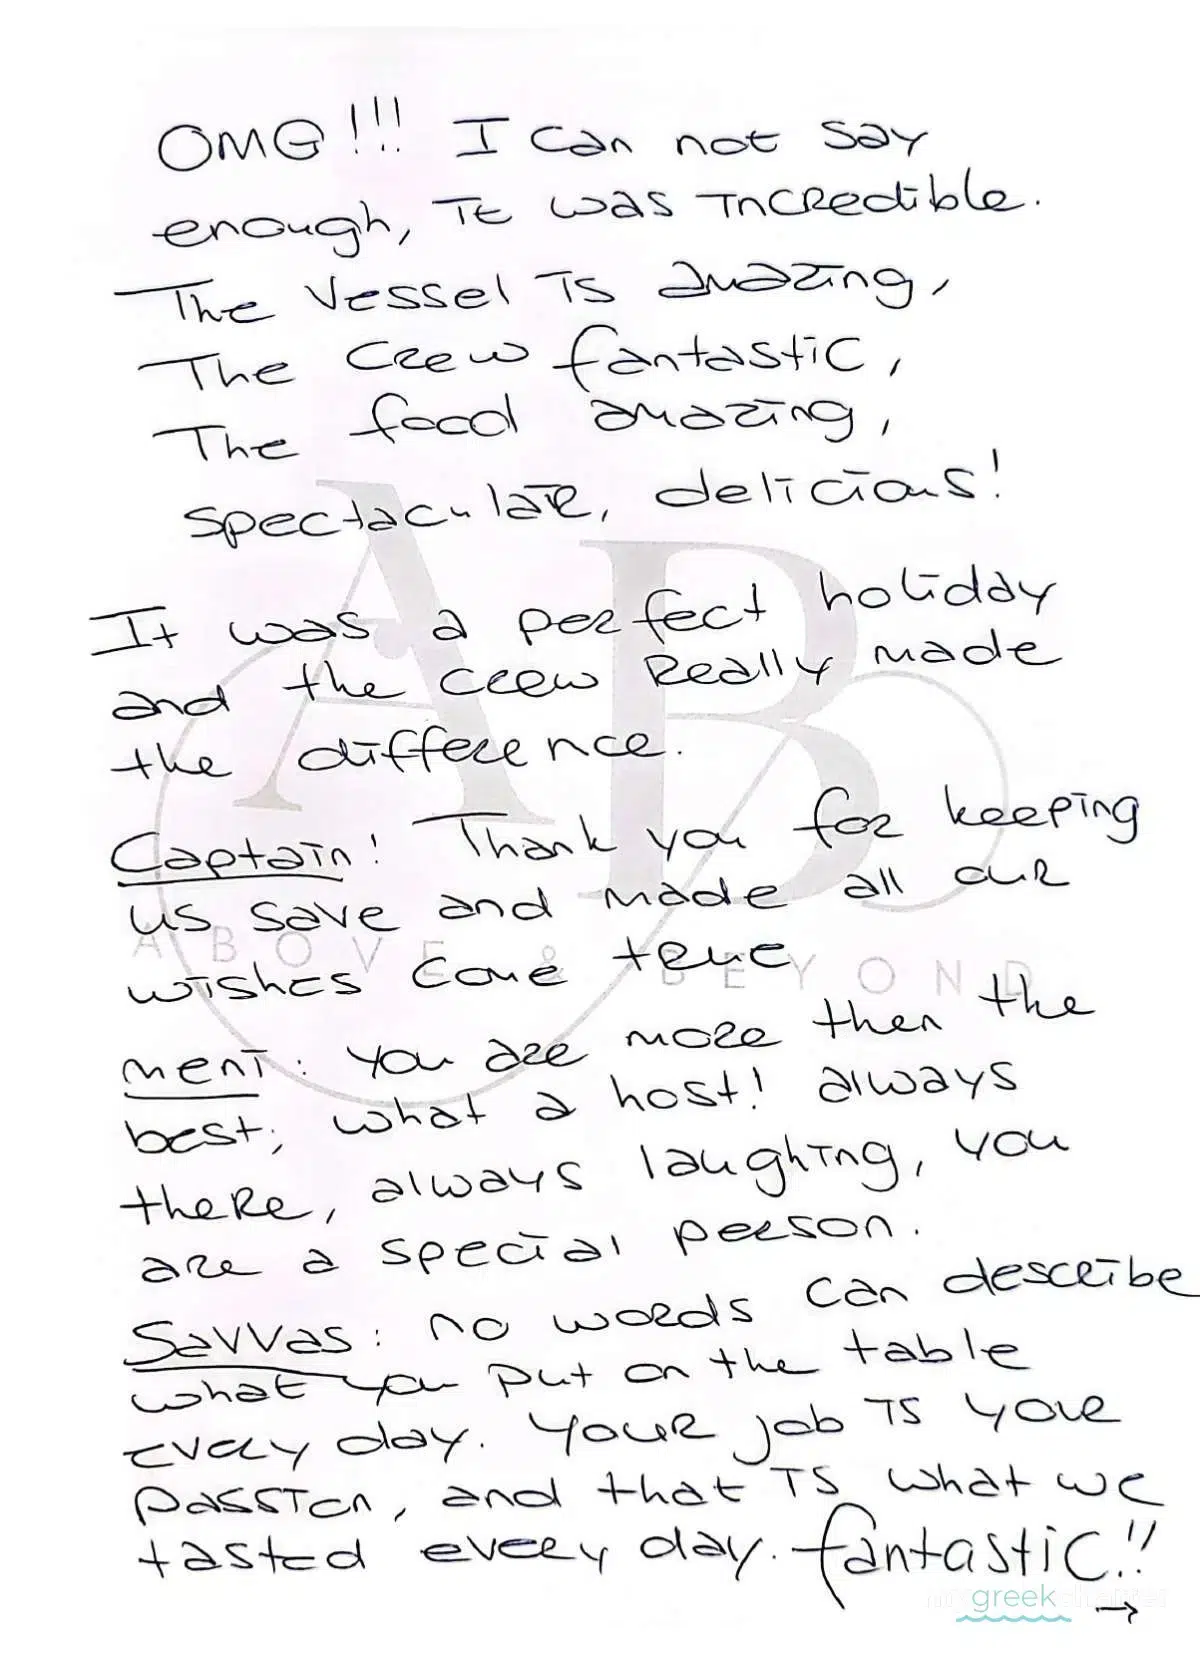 OMG!!! I can not say
enough, it was incredible.
The vessel is amazing,
The crew fantastic,
The food amazing,
spectaculair, delicious!
It was a perfect holiday
and the crew really made
the difference.
Captain! Thank you for keeping
us save and made all our
wishes come true
Meni: you are more then the
best, what a host! always
there, always laughing, you
are a special person.
Savvas: no words can describe
what you put on the table
every day. Your job is your
passion, and that is what we
tasted every day. fantastic!!
→
AB
ABOVE & BEYOND
mygreekcharter